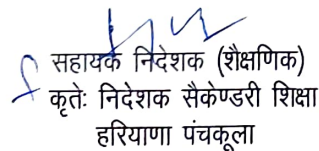 सहायक निदेशक (शैक्षणिक)
कृतेः निदेशक सैकेण्डरी शिक्षा
हरियाणा पंचकूला